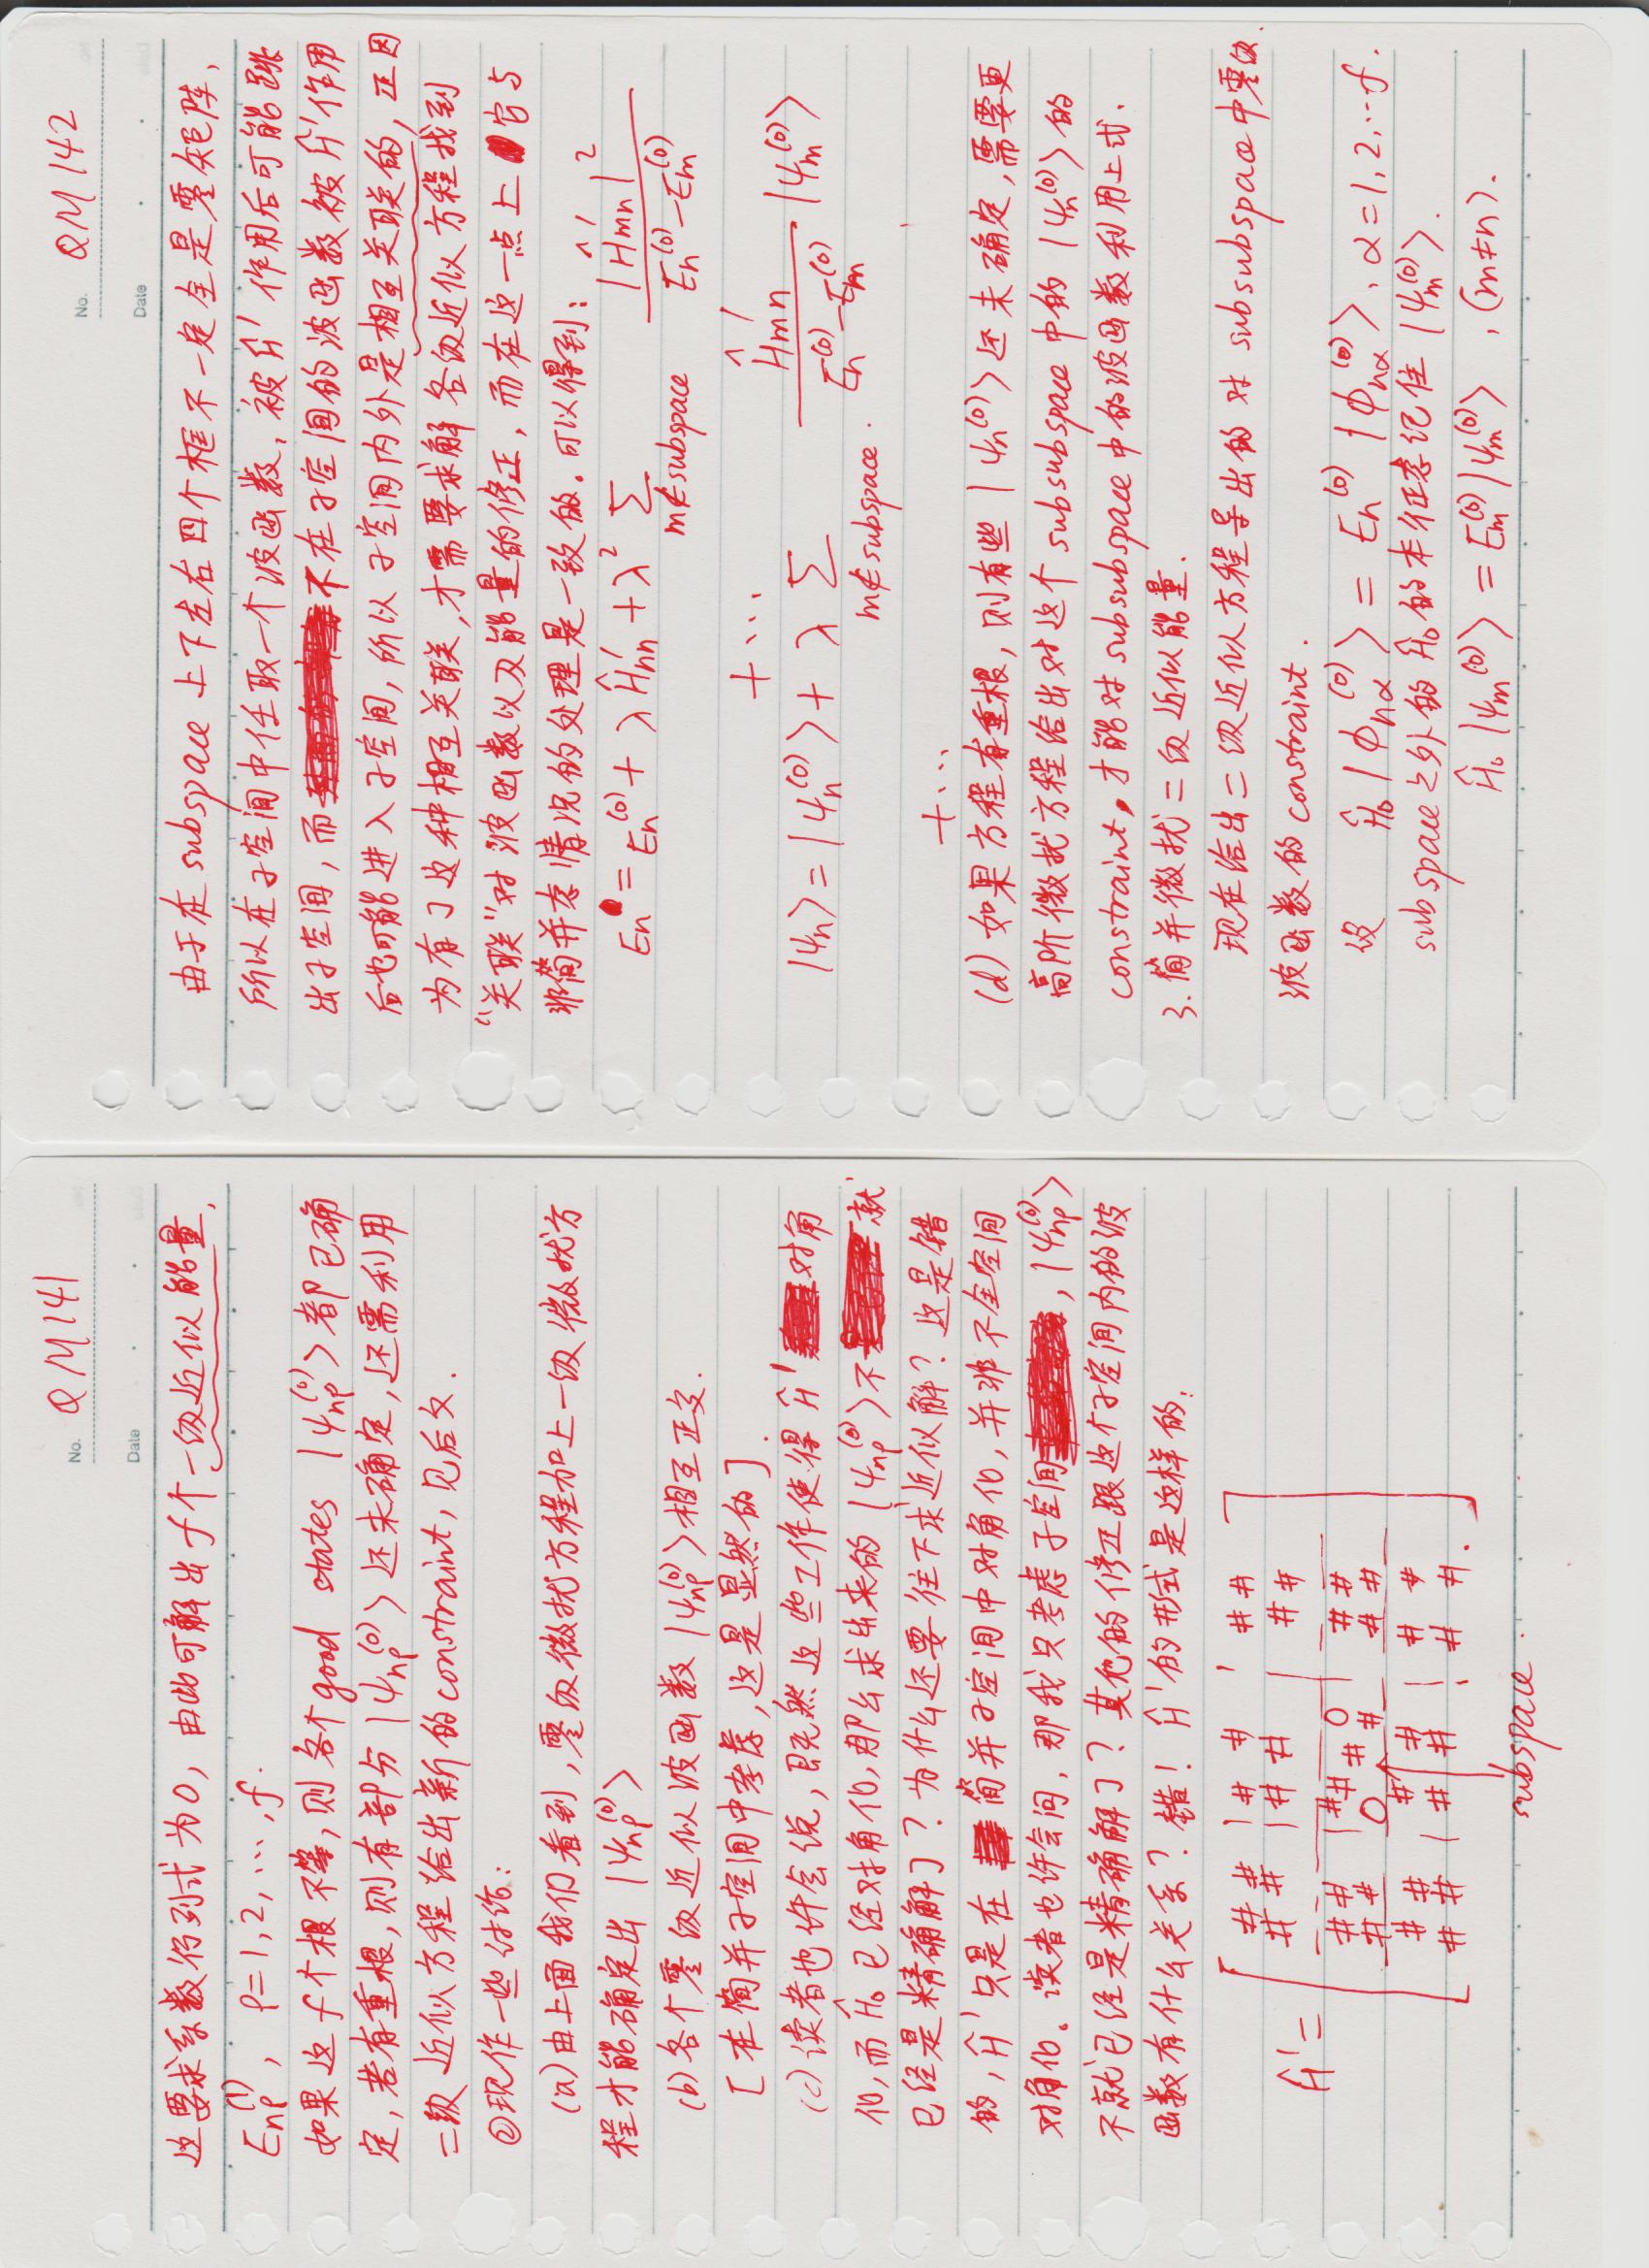 No. QM141
Date
这要求系数行列式为0, 由此可解出f个一级近似能量,
Enρ^(1), ρ=1,2,…,f.
如果这f个根不等, 则各个good states |ψnρ^(0)>都已确
定, 若有重根, 则有部分|ψnρ^(0)>还未确定, 还需利用
二级近似方程给出新的constraint, 见后文.
②现作一些讨论:
(a)由上面我们看到, 零级微扰方程加上一级微扰方
程才能确定出 |ψnρ^(0)>
(b)各个零级近似波函数|ψnρ^(0)>相互正交.
[在简并子空间中考虑, 这是显然的].
(c)读者也许会说, 既然这些工作使得Ĥ'对角
化, 而Ĥ₀已经对角化, 那么求出来的|ψnρ^(0)>不就
已经是精确解了? 为什么还要往下求近似解? 这是错
的, Ĥ'只是在简并子空间中对角化, 并非不全空间
对角化. 读者也许会问, 那我只考虑子空间, |ψnρ^(0)>
不就已经是精确解了? 其他的修正跟这个子空间内的波
函数有什么关系? 错! Ĥ'的形式是这样的:
# # | # # | # #
# # | # # | # #
Ĥ'=
# # | # # # 0 | # #
# # 0 # # #
# # # # | # #
# # | # # | # # .
subspace .
No. QM142
Date
由于在subspace上下左右四个框不一定全是零矩阵,
所以在子空间中任取一个波函数, 被Ĥ'作用后可能跳
出子空间, 而不在子空间的波函数被Ĥ'作用
后也可能进入子空间, 所以子空间内外是相互关联的, 正因
为有了这种相互关联, 才需要求解各级近似方程找到
“关联”对波函数以及能量的修正, 而在这一点上它与
非简并态情况的处理是一致的. 可以得到:
En = En^(0) + λĤ'nn + λ² Σ_{m∉subspace} |Ĥ'mn|² / (En^(0)-Em^(0))
+ …
|ψn> = |ψn^(0)> + λ Σ_{m∉subspace} Ĥ'mn / (En^(0)-Em^(0)) |ψm^(0)>
+ …
(d) 如果方程有重根, 则有些|ψn^(0)>还未确定, 需要更
高阶微扰方程给出对这个subsubspace中的|ψn^(0)>的
constraint, 才能对subsubspace中的波函数利用上式.
3. 简并微扰二级近似能量.
现在给出二级近似方程导出的对subsubspace中零级
波函数的constraint.
设 Ĥ₀|ϕnα^(0)> = En^(0)|ϕnα^(0)>, α=1,2,…f.
subspace之外的Ĥ₀的本征态记住|ψm^(0)>.
Ĥ₀|ψm^(0)> = Em^(0)|ψm^(0)>, (m≠n).